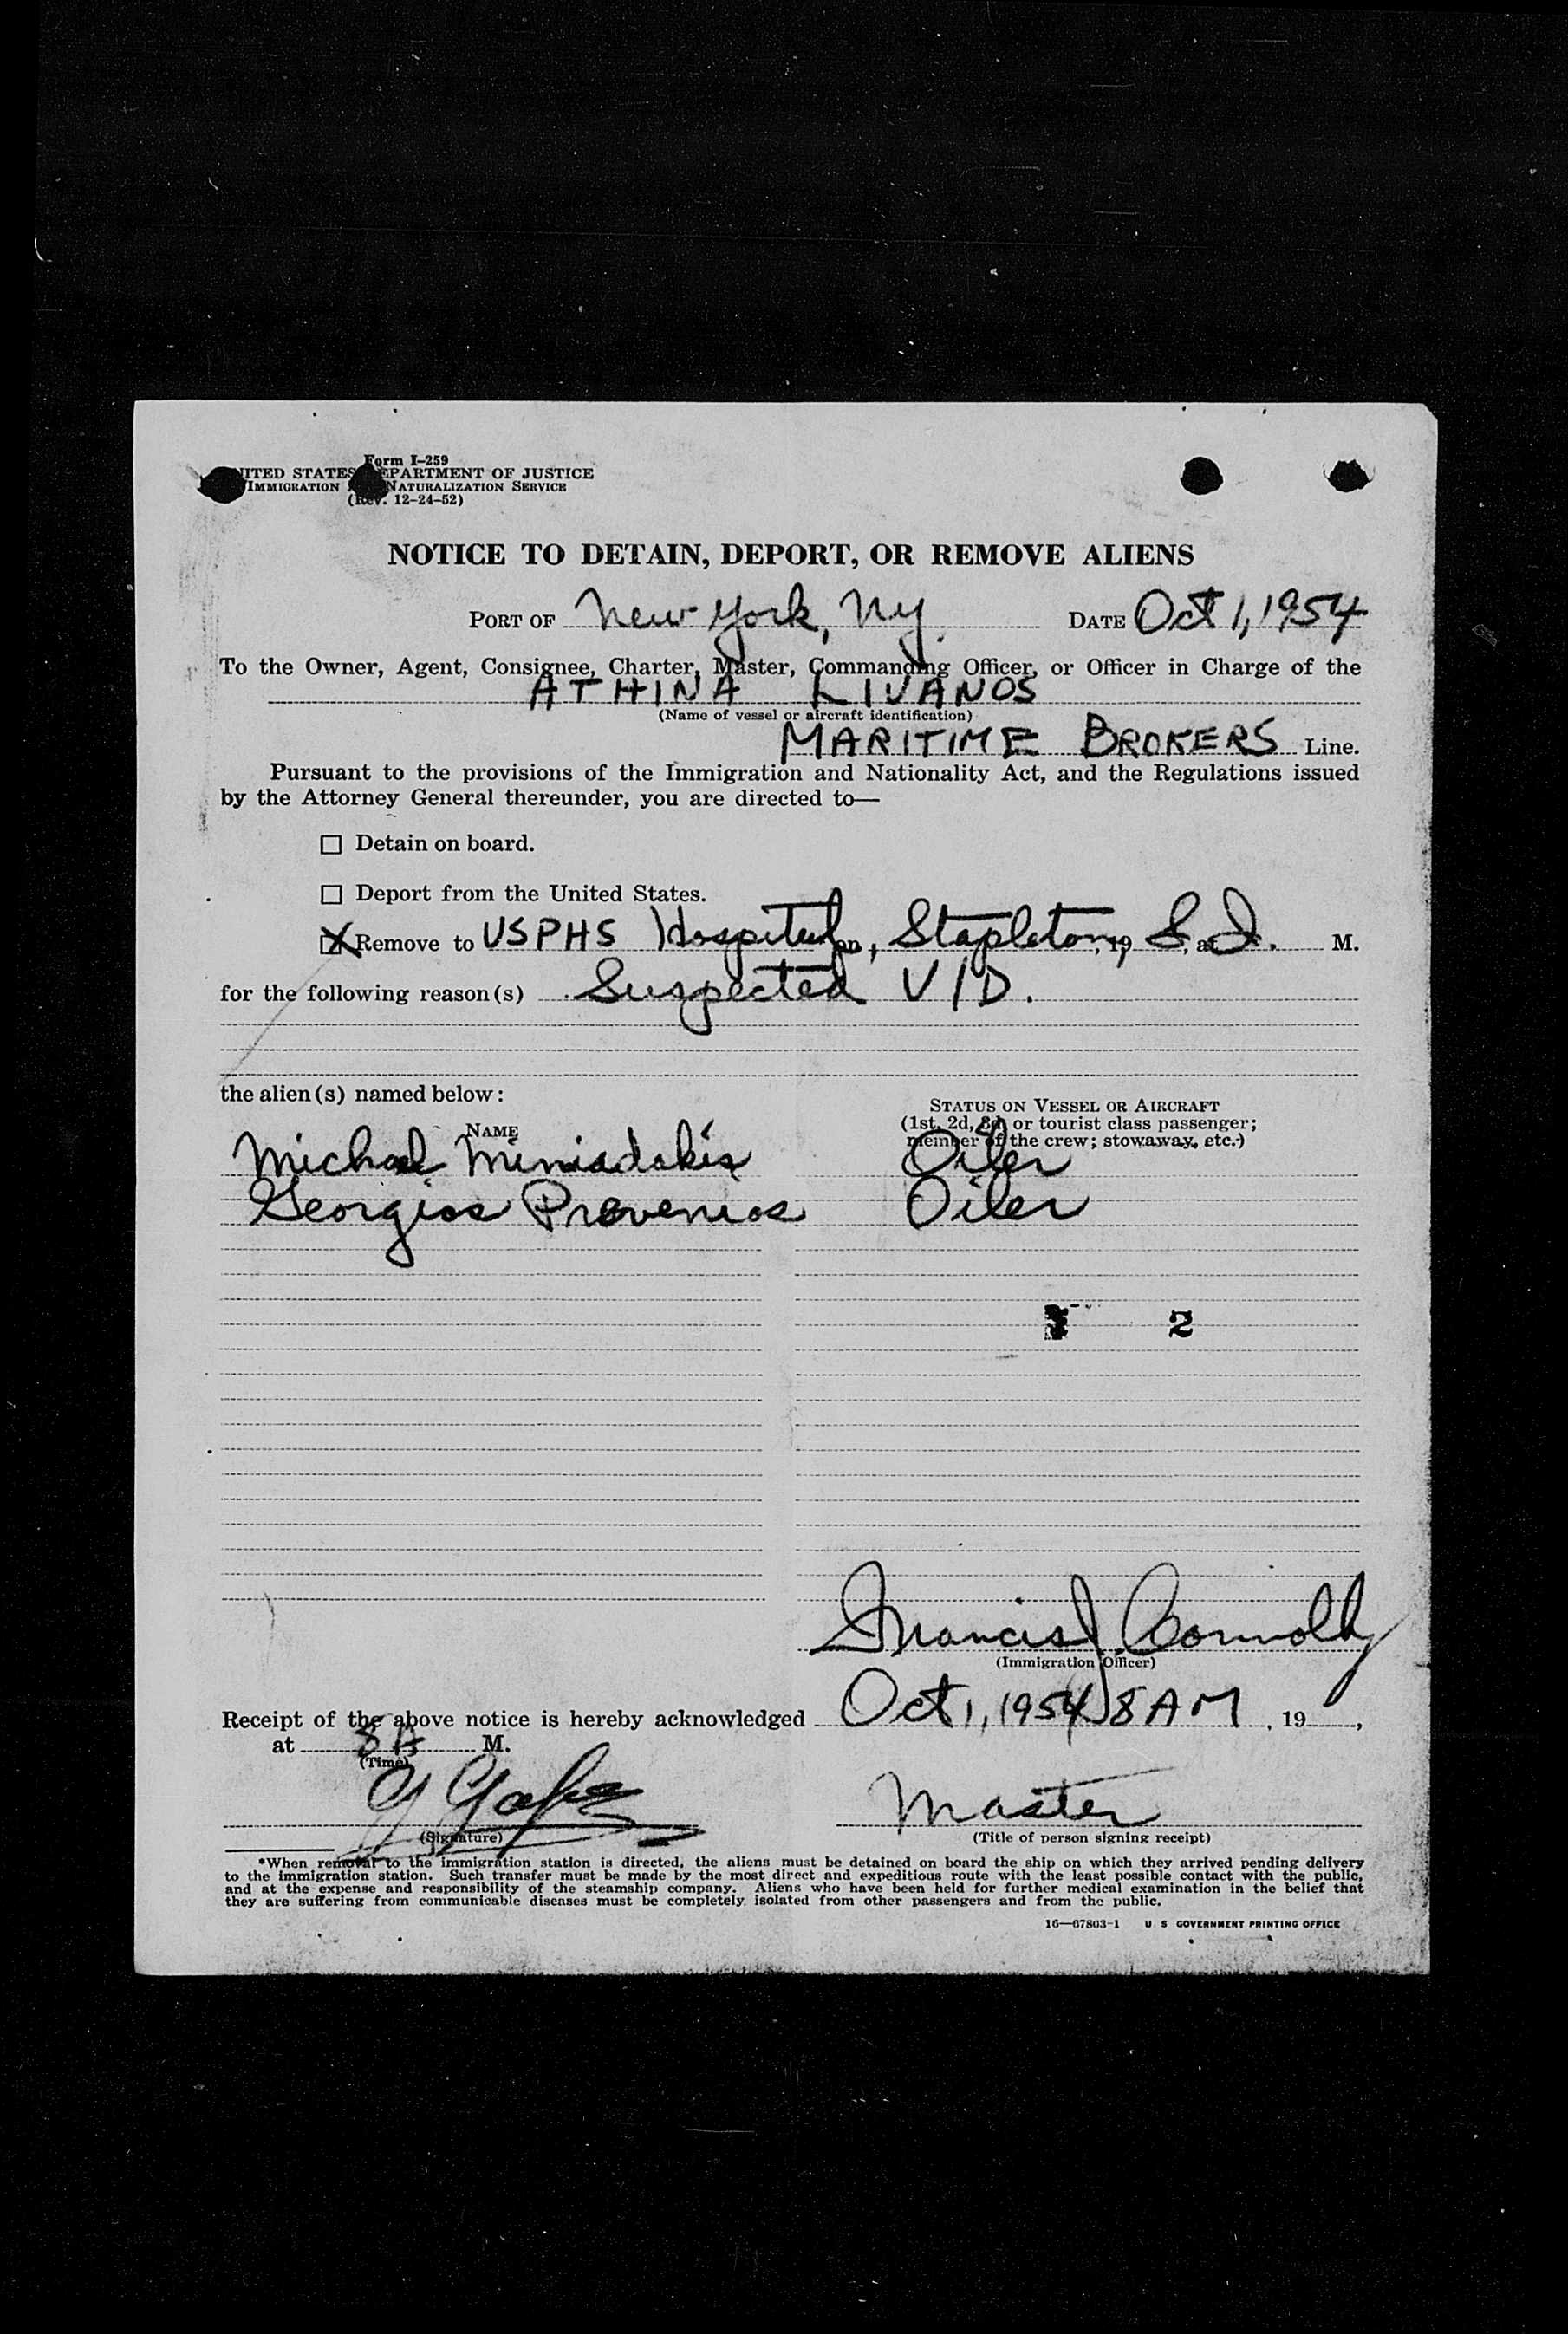 Form I-259
UNITED STATES DEPARTMENT OF JUSTICE
IMMIGRATION NATURALIZATION SERVICE
(Rev. 12-24-52)
NOTICE TO DETAIN, DEPORT, OR REMOVE ALIENS
PORT OF New York, NY. DATE Oct 1, 1954
To the Owner, Agent, Consignee, Charter, Master, Commanding Officer, or Officer in Charge of the
ATHINA LIVANOS
(Name of vessel or aircraft identification)
MARITIME BROKERS Line.
Pursuant to the provisions of the Immigration and Nationality Act, and the Regulations issued
by the Attorney General thereunder, you are directed to—
Detain on board.
Deport from the United States.
X Remove to USPHS Hospital, on Stapleton, 19 S. at I. M.
for the following reason(s) Suspected V/D.
the alien(s) named below:
STATUS ON VESSEL OR AIRCRAFT
(1st, 2d, 3d, or tourist class passenger;
member of the crew; stowaway, etc.)
NAME
Michael Miniadakis Oiler
Georgios Provenios Oiler
2
Francis J Connolly
(Immigration Officer)
Receipt of the above notice is hereby acknowledged Oct 1, 1954 8 AM, 19,
at 8 A M.
(Time)
Master
(Signature) (Title of person signing receipt)
*When removal to the immigration station is directed, the aliens must be detained on board the ship on which they arrived pending delivery
to the immigration station. Such transfer must be made by the most direct and expeditious route with the least possible contact with the public,
and at the expense and responsibility of the steamship company. Aliens who have been held for further medical examination in the belief that
they are suffering from communicable diseases must be completely isolated from other passengers and from the public.
16—67803-1 U S GOVERNMENT PRINTING OFFICE